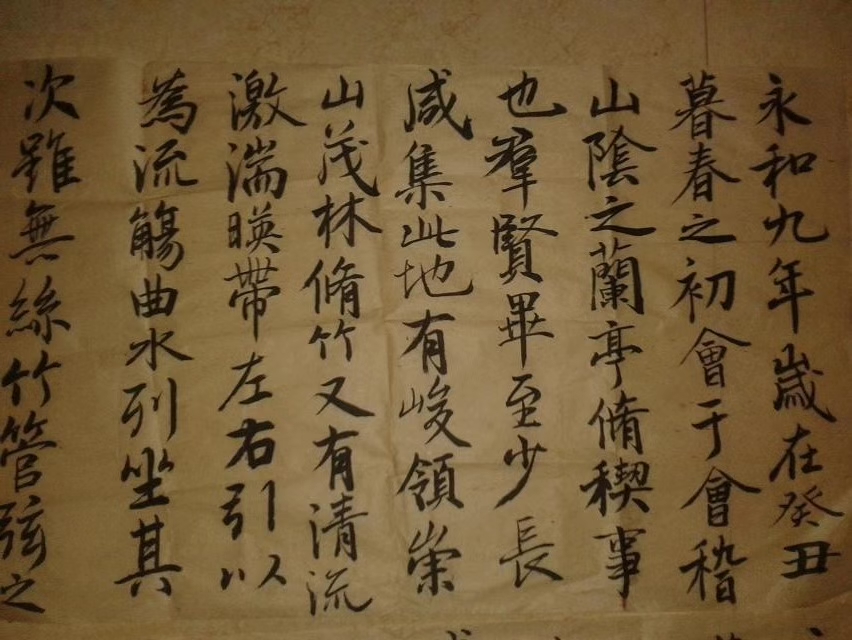 永和九年歲在癸丑
暮春之初會于會稽
山陰之蘭亭脩稧事
也羣賢畢至少長
咸集此地有峻領崇
山茂林脩竹又有清流
激湍暎帶左右引以
為流觴曲水列坐其
次雖無絲竹管弦之